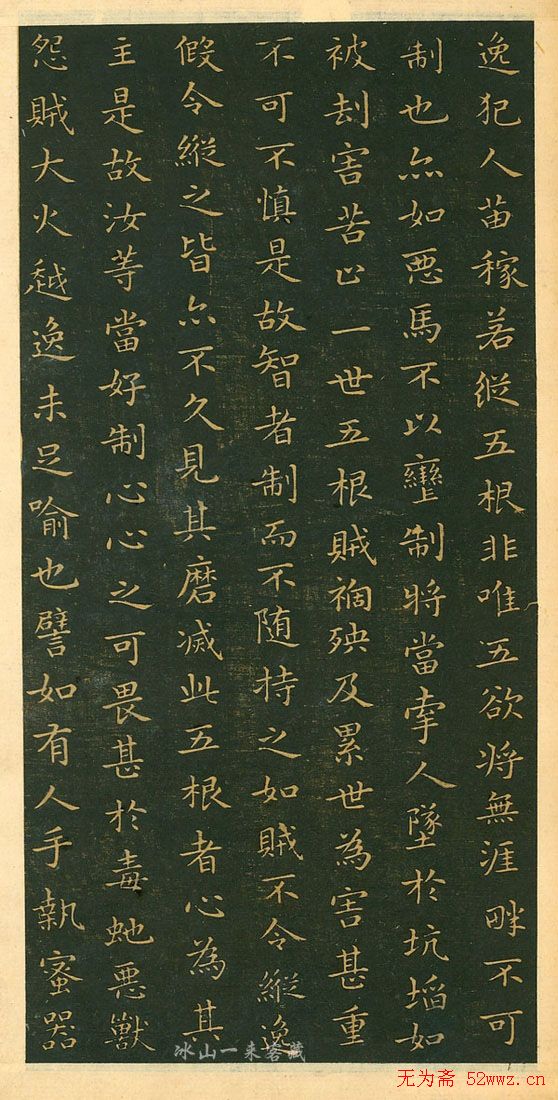 逸犯人苗稼若縱五根非唯五欲將無涯畔不可
制也亦如悪馬不以轡制將當牽人墜於坑埳如
被刦害苦止一世五根賊禍殃及累世為害甚重
不可不慎是故智者制而不随持之如賊不令縱逸
假令縱之皆亦不久見其磨滅此五根者心為其
主是故汝等當好制心心之可畏甚於毒虵悪獸
怨賊大火越逸未足喻也譬如有人手執蜜器
冰山一来客藏
无为斋 52wwz.cn